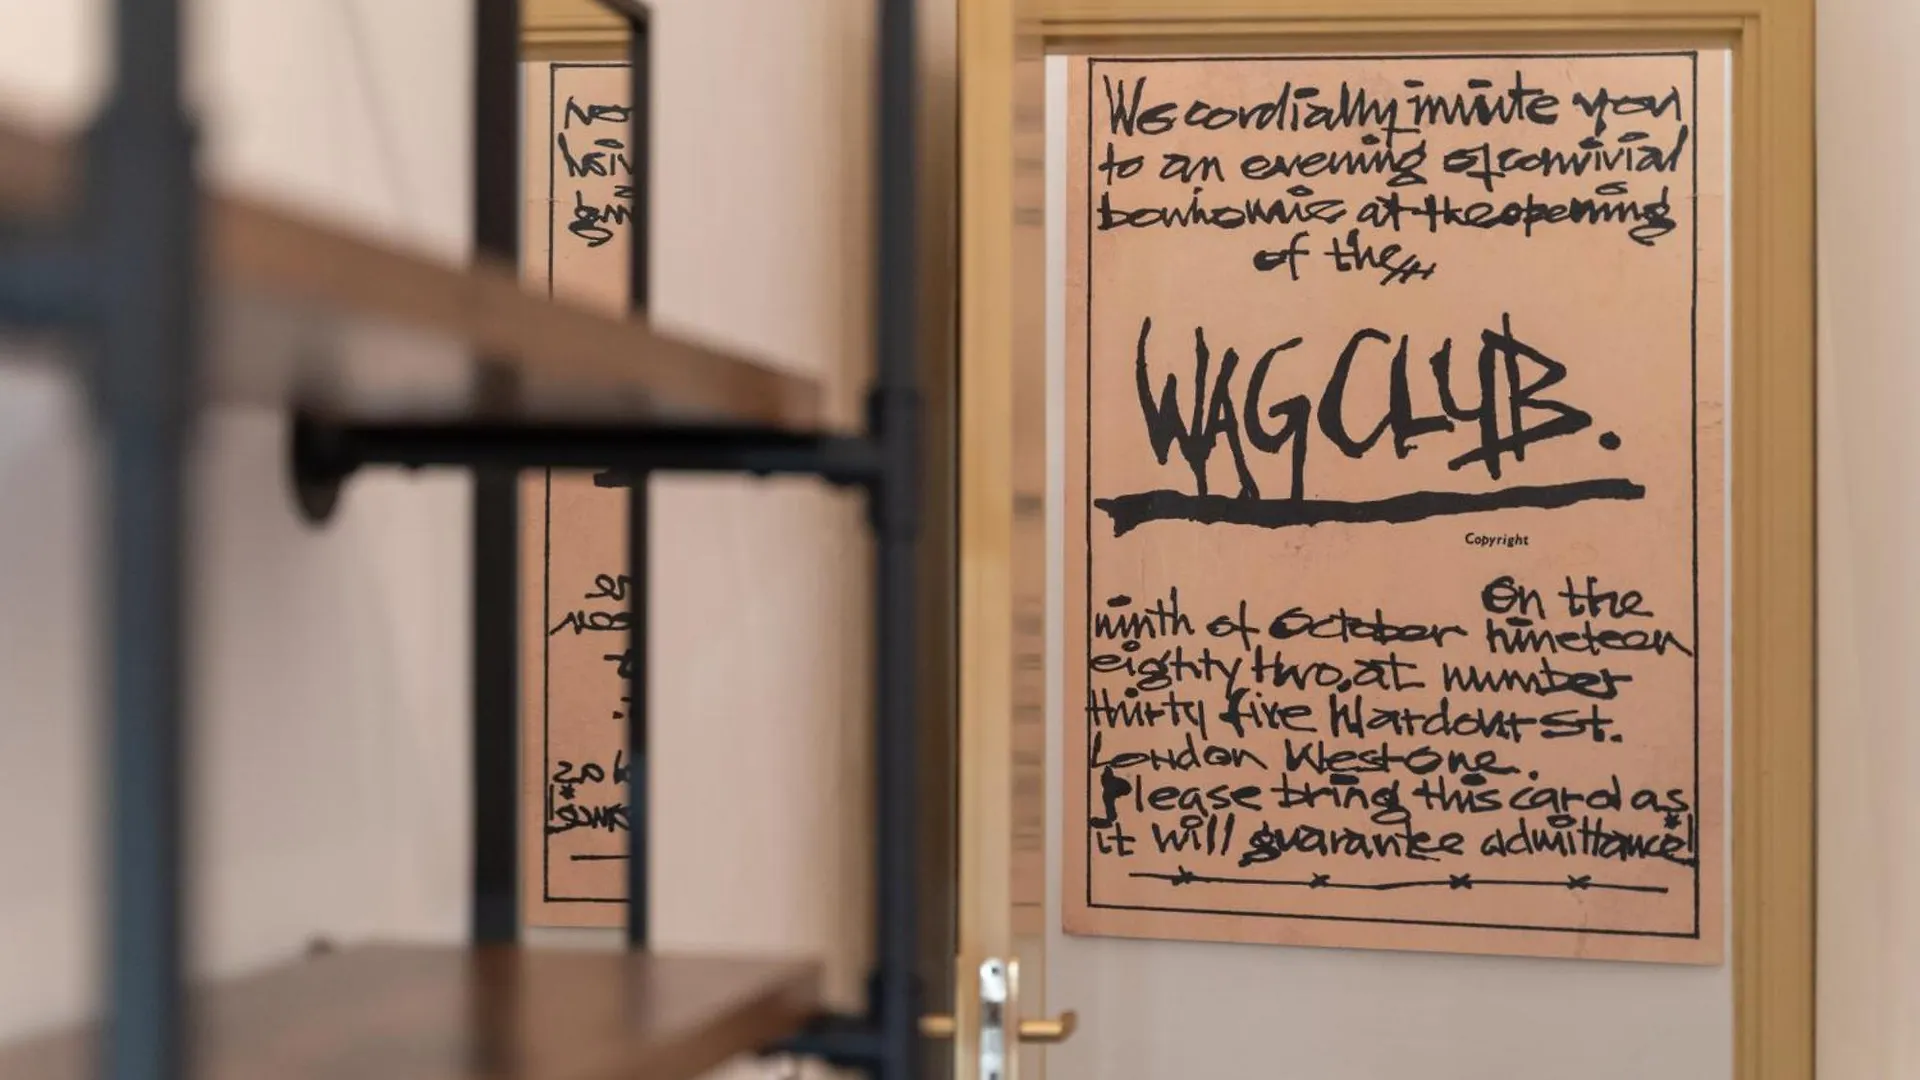 We cordially invite you
to an evening of convivial
bonhomie at the opening
of the
WAG CLUB.
Copyright
On the
ninth of October nineteen
eighty two, at number
thirty five Wardour St.
London West One.
Please bring this card as
it will guarantee admittance!